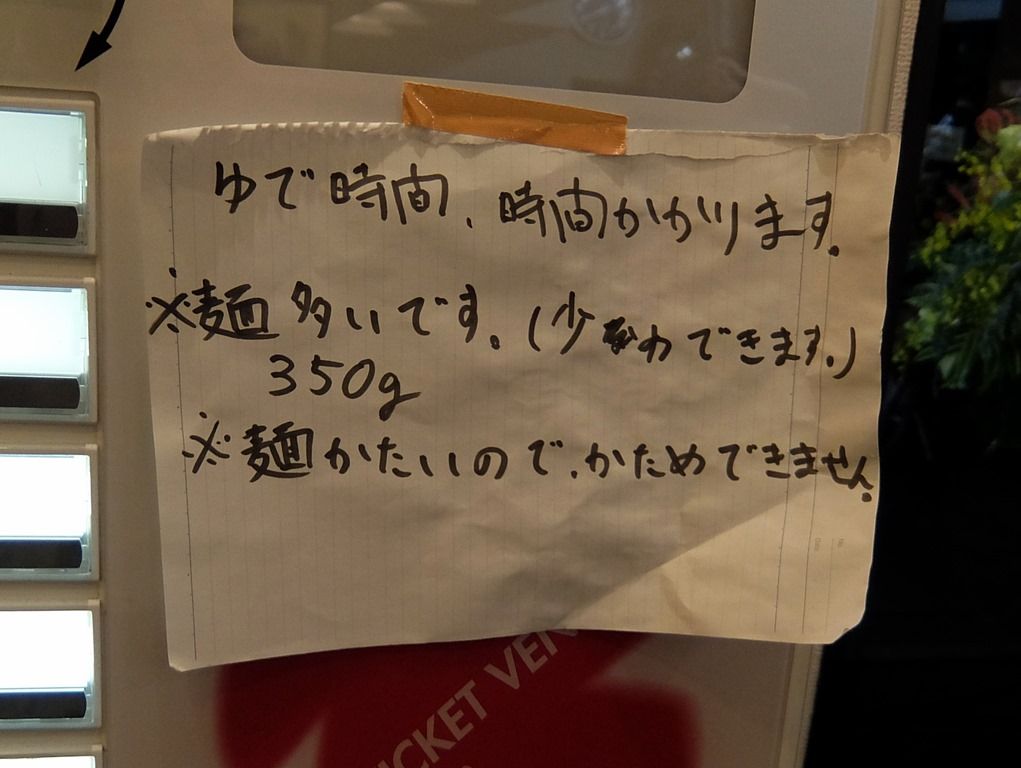 ゆで時間、時間かかります。
※麺多いです。(少なめできます。)
350g
※麺かたいので、かためできません。
TICKET VEN